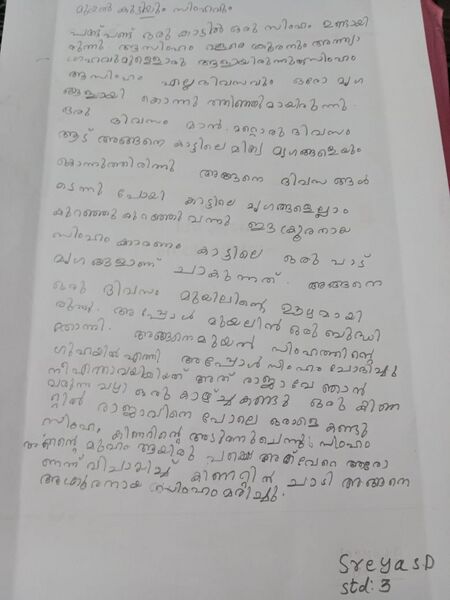 മുയൽ കുട്ടിലും സിംഹവും
പണ്ട്പണ്ട് ഒരു കാട്ടിൽ ഒരു സിംഹം ഉണ്ടായി
രുന്നു ആ സിംഹം വളരെ ക്രൂരനും അത്യാ
ഗ്രഹവുമുള്ളൊരു ആളായിരുന്നു സിംഹം
ആ സിംഹം എല്ലദിവസവും ഓരോ മൃഗ
ങ്ങളായി കൊന്നു ത്തിന്നുമായിരുന്നു.
ഒരു ദിവസം മാൻ. മറ്റൊരു ദിവസം
ആട് അങ്ങനെ കാട്ടിലെ മിക്ക മൃഗങ്ങളെയും
കൊന്നുത്തിരിന്നു അങ്ങനെ ദിവസങ്ങൾ
കടന്നു പോയി കാട്ടിലെ മൃഗങ്ങളെല്ലാം
കുറഞ്ഞു കുറഞ്ഞി വന്നു ഈ ക്രൂരനായ
സിംഹം കാരണം കാട്ടിലെ ഒരു പാട്
മൃഗങ്ങളാണ് ചാകുന്നത്. അങ്ങനെ
ഒരു ദിവസം മുയിലിന്റെ ഊഴമായി
രുന്നു. അപ്പോൾ മുയലിന് ഒരു ബുദ്ധി
തോന്നി. അങ്ങനെ മുയൽ സിംഹത്തിന്റെ
ഗുഹയിൽ എന്നി അപ്പോൾ സിംഹം ചോദിച്ചു
നീ എന്താ വയിയിയത് അത് രാജാവേ ഞാൻ
വരുന്ന വഴി ഒരു കാഴ്ച്ച കണ്ടു ഒരു കിണ
റ്റിൽ രാജാവിനെ പോലെ ഒരാളെ കണ്ടു
സിംഹം, കിണറിന്റെ അടുത്തുചെന്നു സിംഹം
ന്റെ മുഖം ആയിരു പക്ഷെ അത് വേറെ ആരോ
ണന്ന് വിചായിച്ച് കിണറ്റിൽ ചാടി അങ്ങനെ
ആ ക്രൂരനായ സിംഹം മരിച്ചു.
Sreyas D
std: 3